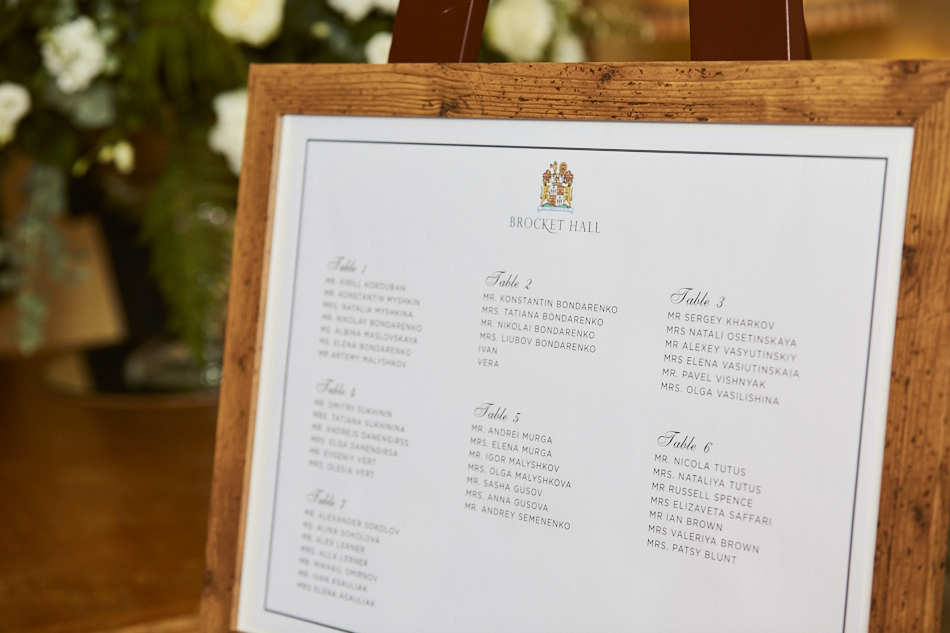 BROCKET HALL
Table 1
MR. KIRILL KORDUBAN
MR. KONSTANTIN MYSHKIN
MRS. NATALIA MYSHKINA
MR. NIKOLAY BONDARENKO
MS. ALBINA MASLOVSKAYA
MS. ELENA BONDARENKO
MR ARTEMY MALYSHKOV
Table 2
MR. KONSTANTIN BONDARENKO
MRS. TATIANA BONDARENKO
MR. NIKOLAI BONDARENKO
MRS. LIUBOV BONDARENKO
IVAN
VERA
Table 3
MR SERGEY KHARKOV
MRS NATALI OSETINSKAYA
MR ALEXEY VASYUTINSKIY
MRS ELENA VASIUTINSKAIA
MR. PAVEL VISHNYAK
MRS. OLGA VASILISHINA
Table 4
MR. DMITRII SUKHININ
MRS. TATIANA SUKHININA
MR. ANDREJS DANENGIRSS
MRS. ELGA DANENGIRSA
MR. EVGENIY VERT
MRS. OLESIA VERT
Table 5
MR. ANDREI MURGA
MRS. ELENA MURGA
MR. IGOR MALYSHKOV
MRS. OLGA MALYSHKOVA
MR. SASHA GUSOV
MRS. ANNA GUSOVA
MR. ANDREY SEMENENKO
Table 6
MR. NICOLA TUTUS
MRS. NATALIYA TUTUS
MR RUSSELL SPENCE
MRS ELIZAVETA SAFFARI
MR IAN BROWN
MRS VALERIYA BROWN
MRS. PATSY BLUNT
Table 7
MR. ALEXANDER SOKOLOV
MS. ALINA SOKOLOVA
MR. ALEX LERNER
MRS. ALLA LERNER
MR. MIKHAIL SMIRNOV
MR. IVAN ASAULIAK
MRS ELENA ASAULIAK